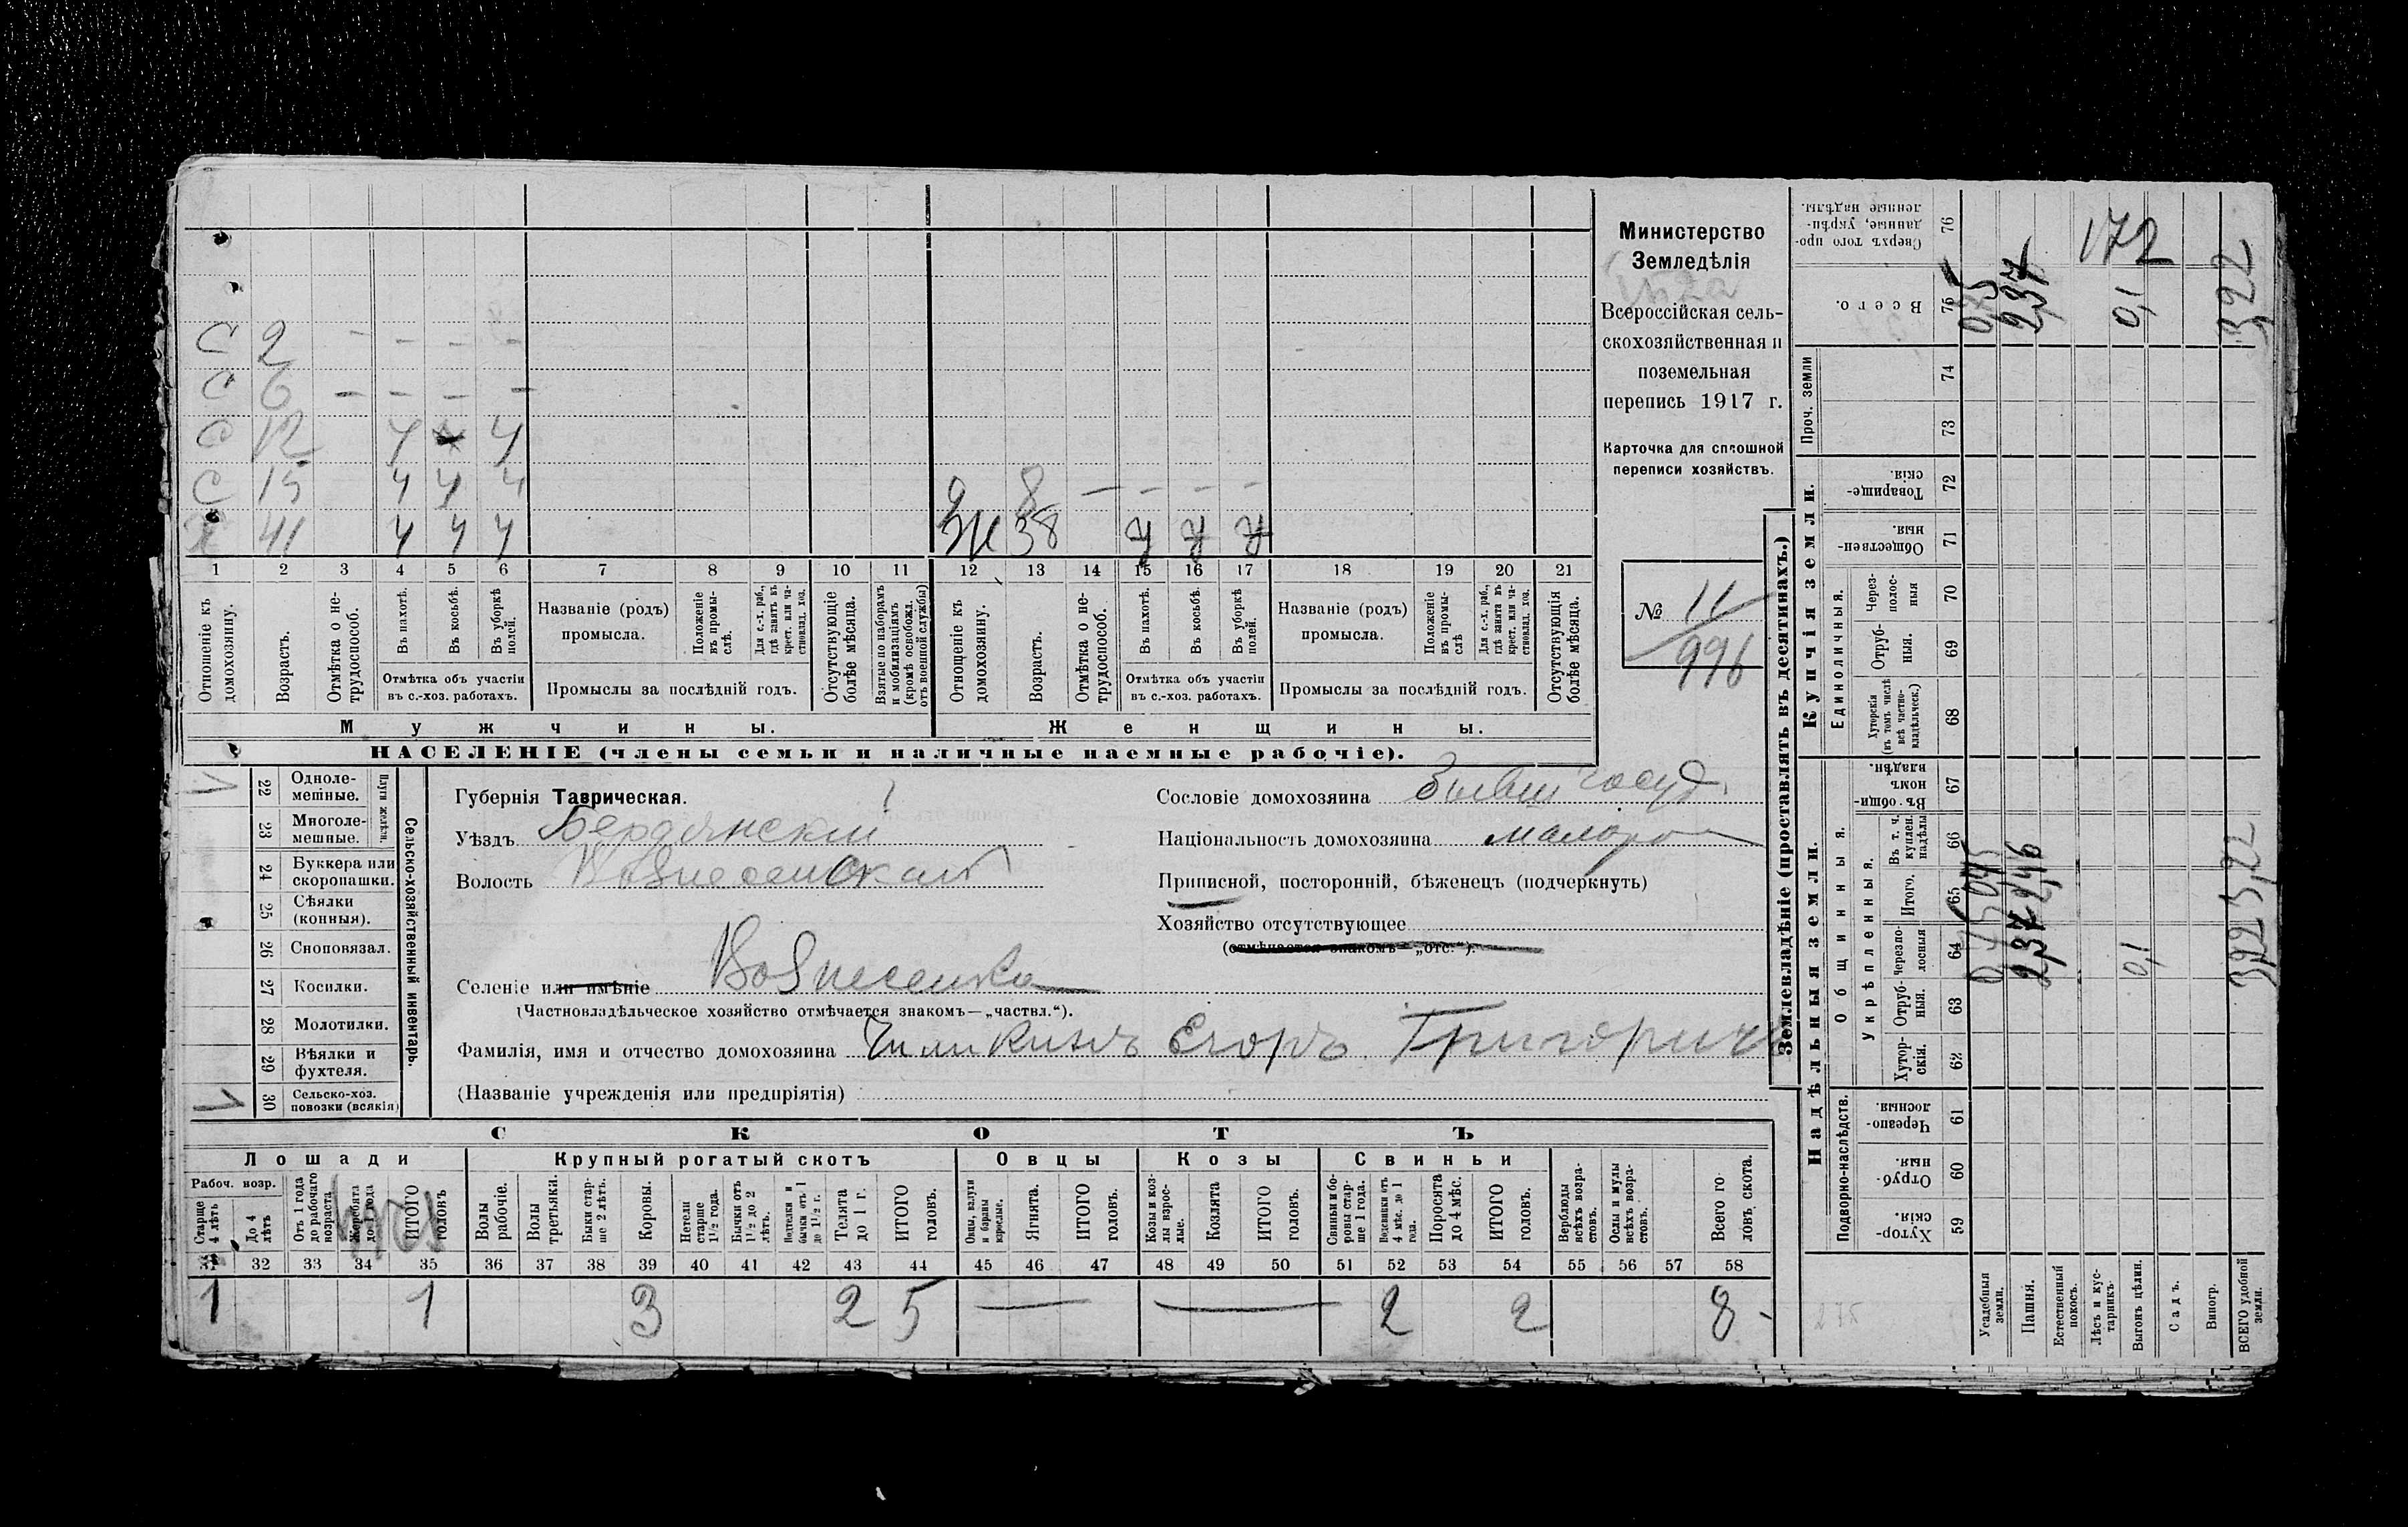 С 2 - - - - -
С 6 - - - - -
С 12 ч ч ч
С 15 ч ч ч
9 8 - - - -
Х 41 ч ч ч
Ж 38 у у у
1 2 3 4 5 6 7 8 9 10 11 12 13 14 15 16 17 18 19 20 21
Отношеніе къ домохозяину.
Возрастъ.
Отмѣтка о не-
трудоспособ.
Въ пахотѣ.
Въ косьбѣ.
Въ уборкѣ полей.
Отмѣтка объ участіи
въ с.-хоз. работахъ.
Названіе (родъ)
промысла.
Положеніе въ промы-
слѣ.
Для с.-х. раб., гдѣ занятъ въ крест. или ча-
стновлад. хоз.
Промыслы за послѣдній годъ.
Отсутствующіе болѣе мѣсяца.
Взятые по наборамъ и мобилизаціямъ (кромѣ освобожд. отъ военной службы)
Отношеніе къ домохозяину.
Возрастъ.
Отмѣтка о не-
трудоспособ.
Въ пахотѣ.
Въ косьбѣ.
Въ уборкѣ полей.
Отмѣтка объ участіи
въ с.-хоз. работахъ.
Названіе (родъ)
промысла.
Положеніе въ промы-
слѣ
Для с.-х. раб., гдѣ занята въ крест. или ча-
стновлад. хоз.
Промыслы за послѣдній годъ.
Отсутствующія болѣе мѣсяца.
Мужчины.
Женщины.
НАСЕЛЕНІЕ (члены семьи и наличные наемные рабочіе).
Министерство
Земледѣлія
Всероссійская сель-
скохозяйственная и
поземельная
перепись 1917 г.
Карточка для сплошной
переписи хозяйствъ.
№ 11
996
Плуги желѣзн.
22 Одноле-
мешные.
23 Многоле-
мешные.
24 Буккера или
скоропашки.
25 Сѣялки
(конныя).
26 Сноповязал.
27 Косилки.
28 Молотилки.
29 Вѣялки и
фухтеля.
30 Сельско-хоз.
повозки (всякія)
Сельско-хозяйственный инвентарь.
Губернія Таврическая.
Уѣздъ Бердянскій
Волость Вознесенская
Селеніе или имѣніе Вознесенка
(Частновладѣльческое хозяйство отмѣчается знакомъ—„частвл.“).
Фамилія, имя и отчество домохозяина Егоръ Григоричъ
(Названіе учрежденія или предпріятія)
Сословіе домохозяина бывш госуд.
Національность домохозяина малор
Приписной, посторонній, бѣженецъ (подчеркнуть)
Хозяйство отсутствующее
(отмѣчается знакомъ—„отс.“).
СКОТЪ
Лошади
Крупный рогатый скотъ
Овцы
Козы
Свиньи
Рабоч. возр.
Старше 4 лѣтъ
До 4 лѣтъ
Отъ 1 года до рабочаго возраста
Жеребята до 1 года
ИТОГО головъ
Волы рабочіе.
Волы третьяки.
Быки стар-
ше 2 лѣтъ.
Коровы.
Нетели старше 1 1/2 года.
Бычки отъ 1 1/2 до 2 лѣтъ.
Нетелки и бычки отъ 1 до 1 1/2 г.
Телята до 1 г.
ИТОГО головъ.
Овцы, валухи и бараны взрослые.
Ягнята.
ИТОГО головъ.
Козы и коз-
лы взрос-
лые.
Козлята
ИТОГО головъ.
Свиньи и бо-
ровы стар-
ше 1 года.
Подсвинки отъ 4 мѣс. до 1 года.
Поросята до 4 мѣс.
ИТОГО головъ.
Верблюды всѣхъ возра-
стовъ.
Ослы и мулы всѣхъ возра-
стовъ.
Всего го-
ловъ скота.
31 32 33 34 35 36 37 38 39 40 41 42 43 44 45 46 47 48 49 50 51 52 53 54 55 56 57 58
1 1 3 2 5 — — 2 2 8 -
Землевладѣніе (проставлять въ десятинахъ.)
Надѣльныя земли.
Купчія земли.
Проч. земли
Подворно-наслѣдств.
Общинныя.
Укрѣпленныя.
Единоличныя.
Хутор-
скія. 59
Отруб-
ныя. 60
Черезпо-
лосныя. 61
Хутор-
скія. 62
Отруб-
ныя. 63
Черезпо-
лосныя 64
Итого. 65
Въ т. ч. куплен. надѣлы 66
Въ общин-
номъ владѣн. 67
Хуторскія (въ томъ числѣ всѣ частно-
владѣльческ.) 68
Отруб-
ныя. 69
Через-
полос-
ныя 70
Обществен-
ныя. 71
Товарище-
скія. 72
73
74
Всего. 75
Сверхъ того про-
данные, укрѣп-
ленные надѣлы. 76
Усадебныя земли.
Пашня. 2,37 2,46 2,37
Естественный покосъ.
Лѣсъ и кус-
тарникъ
Выгонъ цѣлин. 0,1 0,1
Садъ.
Виногр.
ВСЕГО удобной земли. 3,22 3,22 3,22
172
275